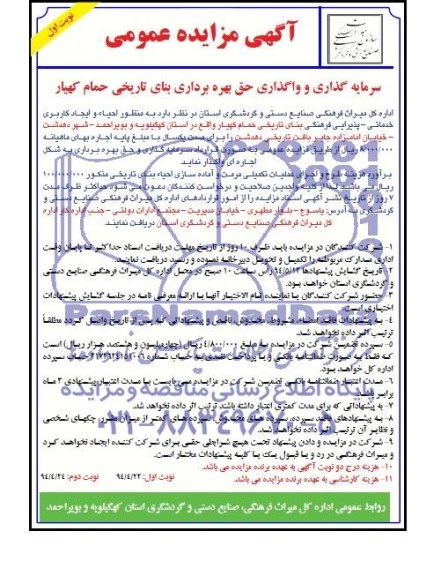 نوبت اول
آگهی مزایده عمومی
سرمایه گذاری و واگذاری حق بهره برداری بنای تاریخی حمام کهیار
اداره کل میراث فرهنگی صنایع دستی و گردشگری استان در نظر دارد به منظور احیاء و ایجاد کاربری
خدماتی – پذیرایی فرهنگی بنای تاریخی حمام کهیار واقع در استان کهگیلویه و بویراحمد – شهر دهدشت
– خیابان امامزاده جابر بافت تاریخی دهدشت را برای مدت یکسال با مبلغ پایه اجاره بهای ماهیانه
۸/۰۰۰/۰۰۰ ریال از طریق مزایده عمومی به صورت قرارداد سرمایه گذاری و حق بهره برداری به شکل
اجاره ای واگذار نماید.
برآورد هزینه طرح و اجرای عملیات تکمیلی مرمت و آماده سازی احیاء بنای تاریخی مذکور
ریال می باشد لذا از کلیه واجدین صلاحیت و درخواست کنندگان دعوت می شود حداکثر ظرف مدت
۷ روز از تاریخ نشر آگهی اسناد مزایده را از امور قراردادهای اداره کل میراث فرهنگی صنایع دستی و
گردشگری به آدرس: یاسوج – بلوار مطهری – خیابان مدیریت – مجتمع ادارات دولتی – جنب اداره کار اداره
کل میراث فرهنگی صنایع دستی و گردشگری استان دریافت نمایند.
۱- شرکت کنندگان در مزایده باید ظرف ۱۰ روز از تاریخ مهلت دریافت اسناد حداکثر تا پایان وقت
اداری مدارک مربوطه را تکمیل و تحویل دبیرخانه نموده و رسید دریافت نمایند.
۲- تاریخ گشایش پیشنهادها ۹۴/۵/۱۲ رأس ساعت ۱۰ صبح در محل اداره کل میراث فرهنگی صنایع دستی
و گردشگری استان خواهد بود.
۳- حضور شرکت کنندگان یا نماینده تام الاختیار آنها با ارائه معرفی نامه در جلسه گشایش پیشنهادات
اختیاری است.
۴- به پیشنهادات فاقد امضاء، مشروط، مخدوش، ناقص و پیشنهاداتی که پس از تاریخ واصل گردد مطلقاً
ترتیب اثر داده نخواهد شد.
۵- سپرده تضمین شرکت در مزایده به مبلغ ۴/۸۰۰/۰۰۰ ریال (چهار میلیون و هشتصد هزار ریال) است
که فقط به صورت ضمانتنامه بانکی و یا پرداخت نقدی به حساب شماره سپرده
اداره کل خواهد بود.
۶- مدت اعتبار ضمانتنامه بانکی تضمین شرکت در مزایده می بایست با مدت اعتبار پیشنهادی ۳ ماه
برابر باشد.
۷- به پیشنهاداتی که برای مدت کمتری اعتبار داشته باشد، ترتیب اثر داده نخواهد شد.
۸- به پیشنهادهای فاقد سپرده، سپرده های مخدوش، سپرده های کمتر از میزان مقرر، چکهای شخصی
و نظایر آن ترتیب اثر داده نخواهد شد.
۹- شرکت در مزایده و دادن پیشنهاد تحت هیچ شرایطی حقی برای شرکت کننده ایجاد نخواهد کرد
و میراث فرهنگی در رد و یا قبول یک یا کلیه پیشنهادات مختار است.
۱۰- هزینه درج دو نوبت آگهی به عهده برنده مزایده می باشد.
۱۱- هزینه کارشناسی به عهده برنده مزایده می باشد.
نوبت اول: ۹۴/۴/۲۲
نوبت دوم: ۹۴/۴/۲۴
روابط عمومی اداره کل میراث فرهنگی، صنایع دستی و گردشگری استان کهگیلویه و بویراحمد
ParsNamadData
پایگاه اطلاع رسانی مناقصه و مزایده